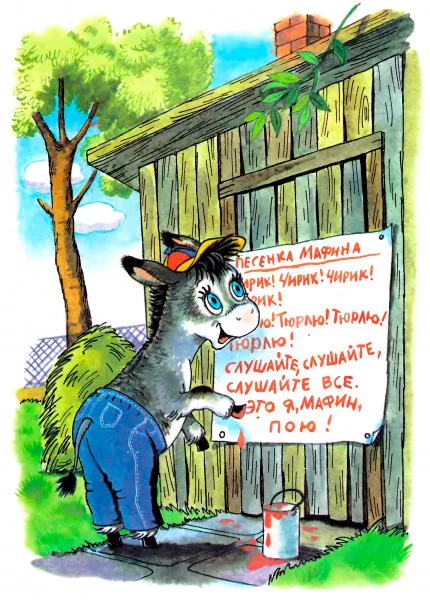 ПЕСЕНКА МАФИНА
ЧИРИК! ЧИРИК! ЧИРИК!
РИК!
Ю! ТЮРЛЮ! ТЮРЛЮ!
ТЮРЛЮ!
СЛУШАЙТЕ, СЛУШАЙТЕ,
СЛУШАЙТЕ ВСЕ.
ЭТО Я, МАФИН,
ПОЮ!